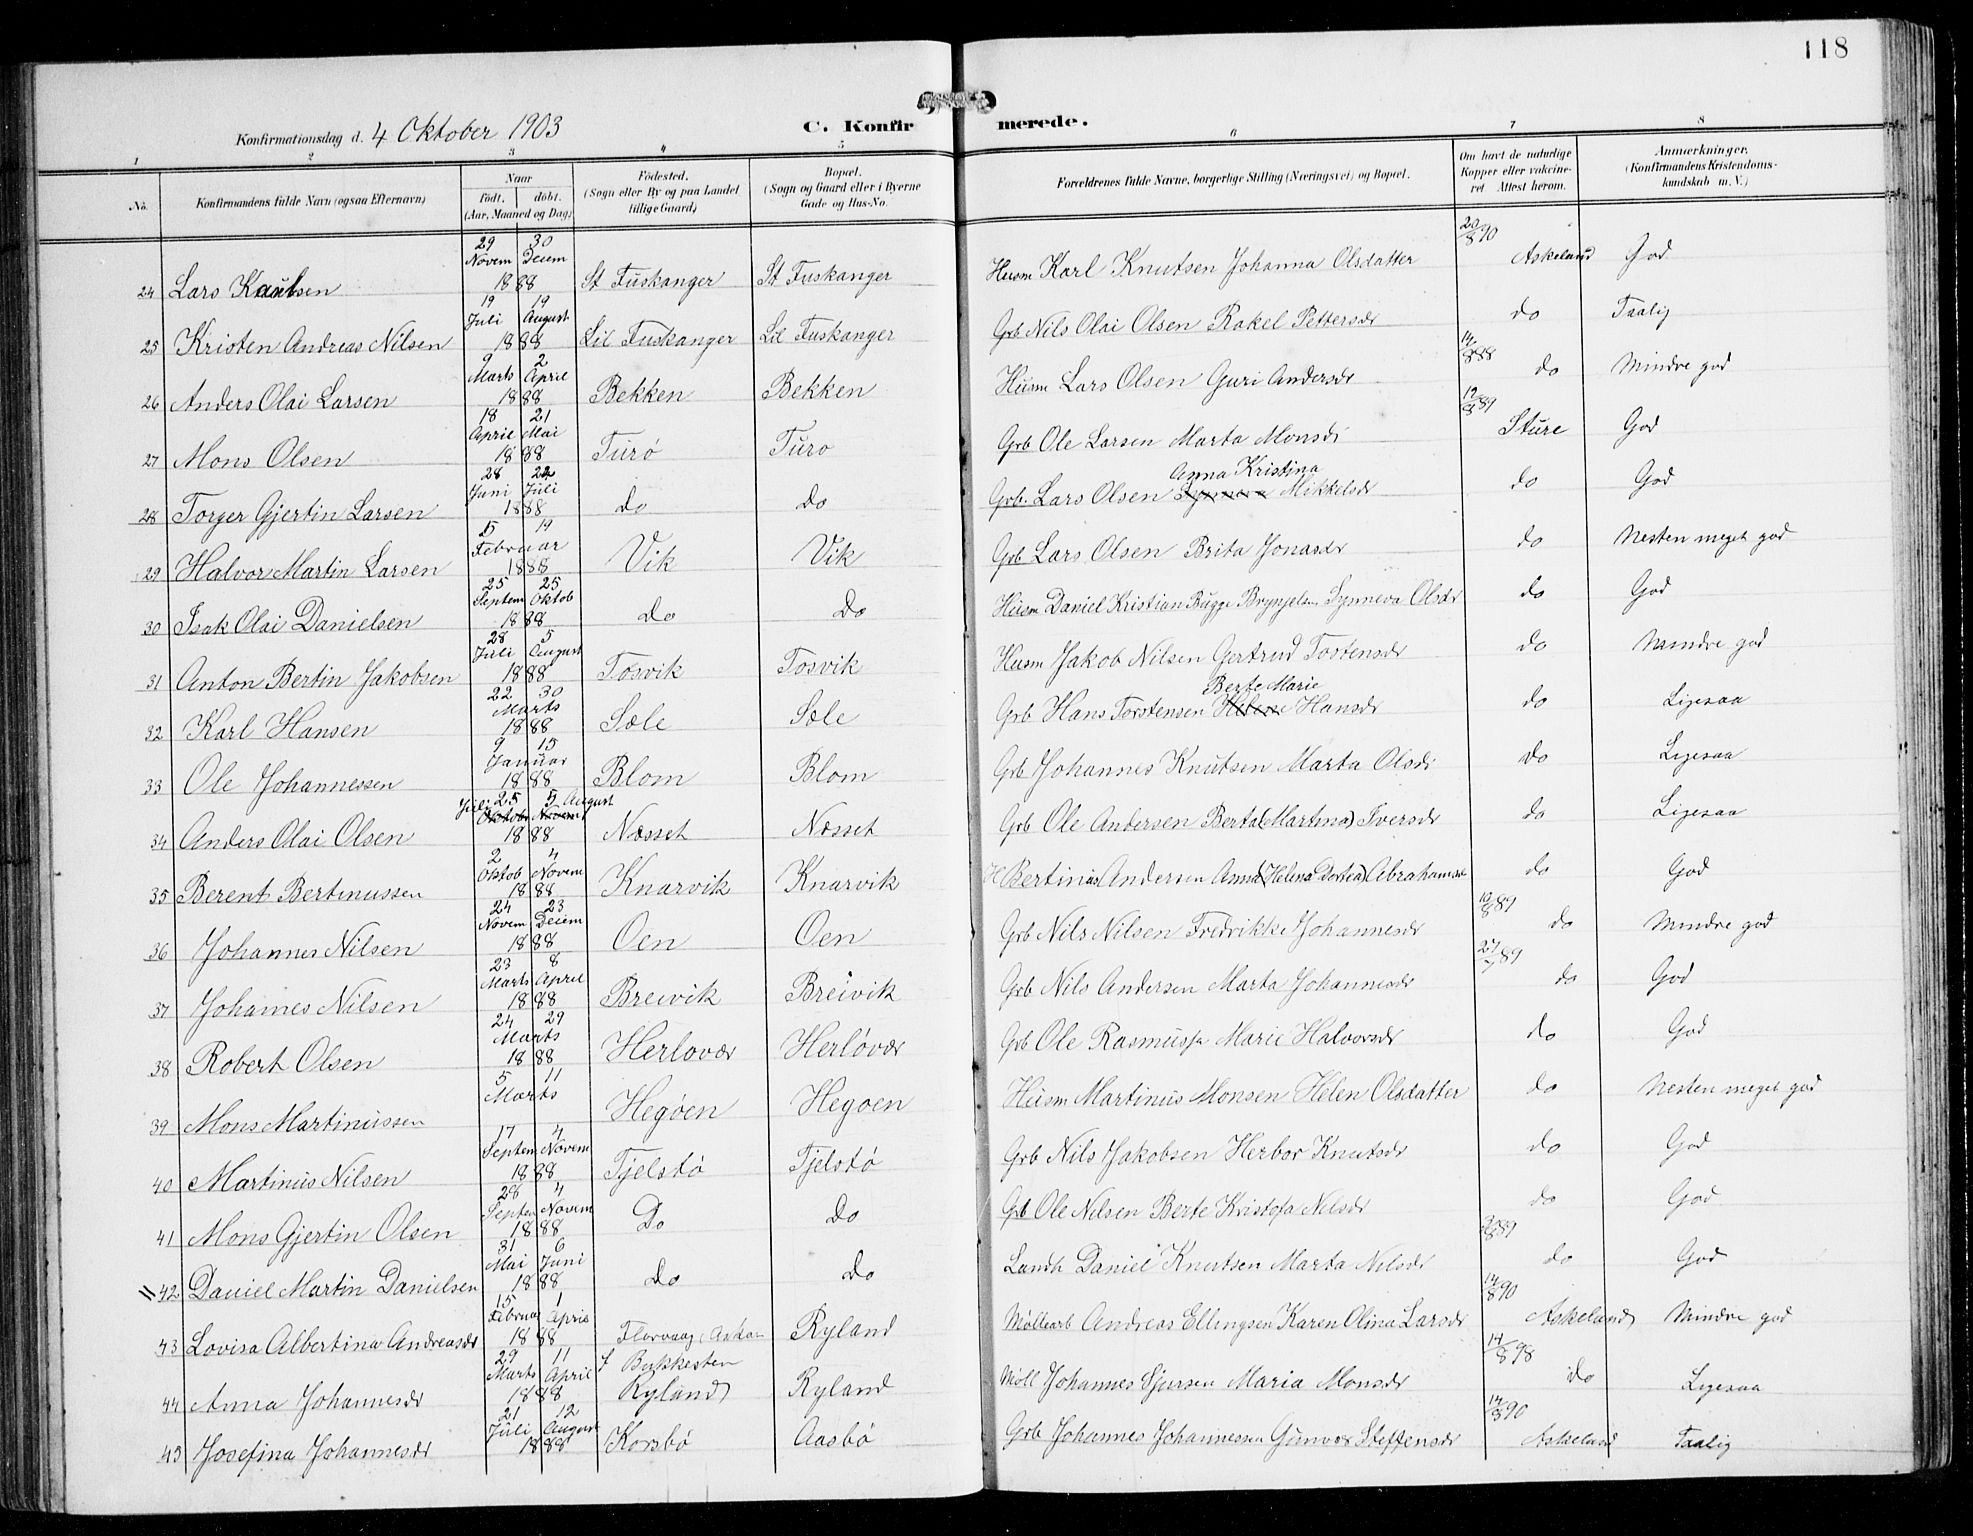 118
Konfirmationsdag d. 4 Oktober 1903
C. Konfirmerede.
1 2 3 4 5 6 7 8
No. Konfirmandens fulde Navn (ogsaa Efternavn) Naar født. døbt. (Aar, Maaned og Dag) Fødested. (Sogn eller By og paa Landet tillige Gaard) Bopæl. (Sogn og Gaard eller i Byerne Gade og Hus-No. Forældrenes fulde Navne, borgerlige Stilling (Næringsvei) og Bopæl. Om havt de naturlige Kopper eller vakcineret Attest herom. Anmærkninger. (Konfirmandens Kristendomskundskab m. V.)
24 Lars Karlsen 29 Novem 30 Decem 1888 St Fuskanger St Fuskanger Husm Karl Knutsen Johanna Olsdatter 20/8 90 Askeland God
25 Kristen Andreas Nilsen 19 Juli 19 August 1888 Lil Fuskanger Lil Fuskanger Grb Nils Olai Olsen Rakel Pettersdr do Taalig
26 Anders Olai Larsen 9 Marts 2 April 1888 Bekken Bekken Husm Lars Olsen Guri Andersdr 14/8 88 do Mindre god
27 Mons Olsen 18 April 21 Mai 1888 Turø Turo Grb Ole Larsen Marta Monsdr 12/8 89 Sture God
28 Torger Gjertin Larsen 28 Juni 22 Juli 1888 do do Grb. Lars Olsen Synneva Anna Kristina Mikkelsdr do God
29 Halvor Martin Larsen 5 19 Februar 1888 Vik Vik Grb Lars Olsen Brita Jonasdr do Nesten meget god
30 Isak Olai Danielsen 25 Septem 25 Oktob 1888 Do Do Husm Daniel Kristian Bugge Brynjelsn Synneva Olsdr do God
31 Anton Bertin Jakobsen 28 Juli 5 August 1888 Tosvik Tosvik Husm Jakob Nilsen Gertrud Tostensdr do Mindre god
32 Karl Hansen 22 30 Marts 1888 Sæle Sæle Grb Hans Torstensen Helene Berte Marie Hansdr do Ligesaa
33 Ole Johannessen 9 15 Januar 1888 Blom Blom Grb Johannes Knutsen Marta Olsdr do Ligesaa
34 Anders Olai Olsen Juli 25 5 August Oktobr Novembr 1888 Næsset Næsset Grb Ole Andersen Berta (Martina) Iversdr do Ligesaa
35 Berent Bertinussen 2 Oktob 4 Novem 1888 Knarvik Knarvik H Bertinus Andersen Anna (Helena Dortea) Abrahamsdr do God
36 Johannes Nilsen 24 Novem 23 Decem 1888 Oen Oen Grb Nils Nilsen Fredrikke Johannesdr 10/8 89 do Mindre god
37 Johannes Nilsen 23 Marts 8 April 1888 Breivik Breivik Grb Nils Andersen Marta Johannesdr 27/7 89 do God
38 Robert Olsen 24 29 Marts 1888 Herlovær Herløvær Grb Ole Rasmuss Marie Halvorsdr do God
39 Mons Martinussen 5 11 Marts Hegøen Hegoen Husm Martinus Monsen Helen Olsdatter do Nesten meget god
40 Martinus Nilsen 17 Septem 4 Novem 1888 Tjelstø Tjelstø Grb Nils Jakobsen Herbor Knutsdr do God
41 Mons Gjertin Olsen 28 Septem 4 Novem 1888 Do Do Grb Ole Nilsen Berte Kristofa Nilsdr do God
42 Daniel Martin Danielsen 31 Mai 6 Juni 1888 do do Landh Daniel Knutsen Marta Nilsdr 89 do God
43 Lovisa Albertina Andreasdr 15 Februar 1 April 1888 Florvaag, Askøn Ryland Møllearb Andreas Ellingsen Karen Olina Larsdr 14/8 90 Askeland Mindre god
44 Anna Johannesdr 29 Marts 11 April 1888 f Bukkesten Ryland Ryland Møll Johannes Sjursen Maria Monsdr 14/8 98 do Ligesaa
45 Josefina Johannesdr 21 Juli 12 August 1888 Korsbø Aasbø Grb Johannes Johannessen Gunvor Steffensdr 14/8 90 Askeland Taalig